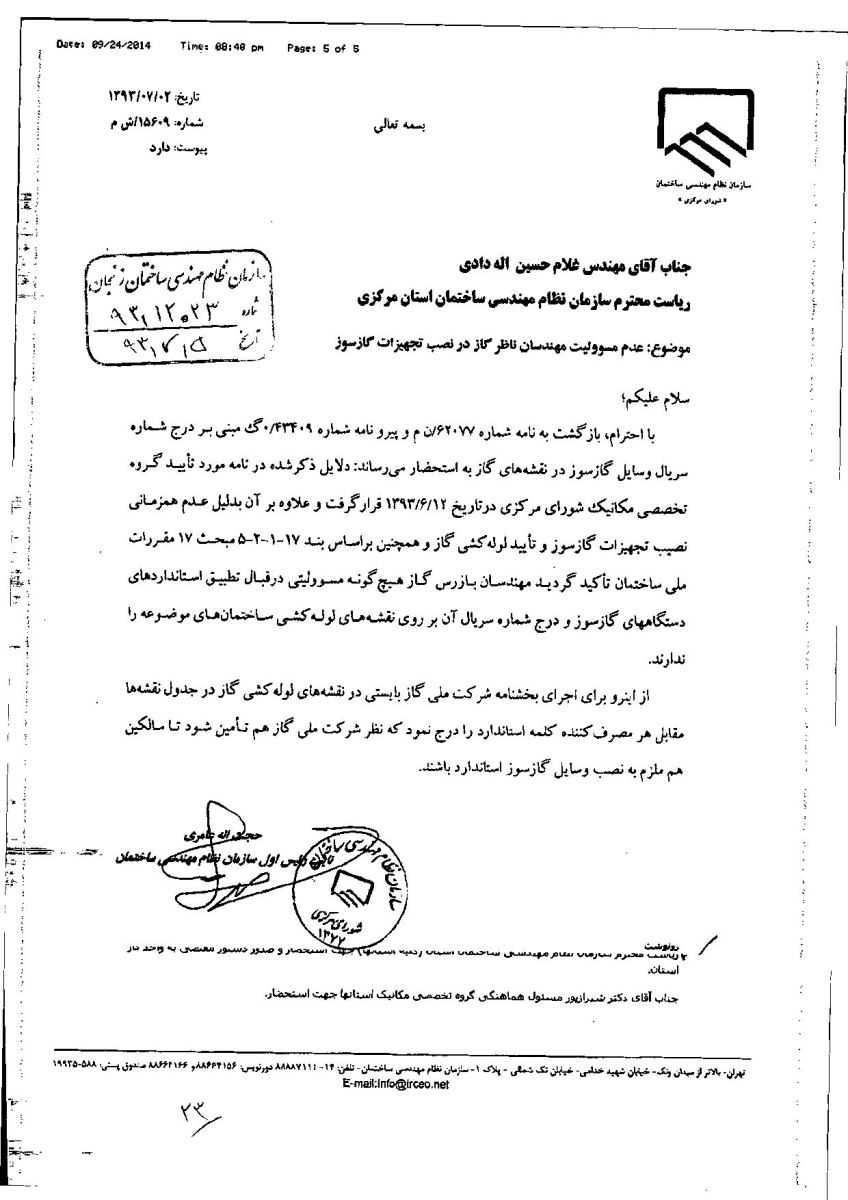 Date: 09/24/2014 Time: 08:40 pm Page: 5 of 5
تاریخ: ۱۳۹۳/۰۷/۰۲
شماره: ۱۵۶۰۹/ش م
پیوست: دارد
بسمه تعالی
سازمان نظام مهندسی ساختمان
«شورای مرکزی»
سازمان نظام مهندسی ساختمان زنجان
شماره ۹۳،۱۲۰۲۳
تاریخ ۹۳،۷،۵
جناب آقای مهندس غلام حسین اله دادی
ریاست محترم سازمان نظام مهندسی ساختمان استان مرکزی
موضوع: عدم مسوولیت مهندسان ناظر گاز در نصب تجهیزات گازسوز
سلام علیکم؛
با احترام، بازگشت به نامه شماره ۶۲۰۷۷/ن م و پیرو نامه شماره ۰/۴۳۴۰۹گ مبنی بر درج شماره
سریال وسایل گازسوز در نقشه‌های گاز به استحضار می‌رساند: دلایل ذکرشده در نامه مورد تأیید گروه
تخصصی مکانیک شورای مرکزی درتاریخ ۱۳۹۳/۶/۱۲ قرارگرفت و علاوه بر آن بدلیل عدم همزمانی
نصیب تجهیزات گازسوز و تأیید لوله‌کشی گاز و همچنین براساس بند ۱۷-۱-۲-۵ مبحث ۱۷ مقررات
ملی ساختمان تأکید گردید مهندسان بازرس گاز هیچ‌گونه مسوولیتی درقبال تطبیق استانداردهای
دستگاههای گازسوز و درج شماره سریال آن بر روی نقشه‌های لوله‌کشی ساختمان‌های موضوعه را
ندارند.
از اینرو برای اجرای بخشنامه شرکت ملی گاز بایستی در نقشه‌های لوله‌کشی گاز در جدول نقشه‌ها
مقابل هر مصرف‌کننده کلمه استاندارد را درج نمود که نظر شرکت ملی گاز هم تأمین شود تا مالکین
هم ملزم به نصب وسایل گازسوز استاندارد باشند.
اله عامری
نایب رئیس اول سازمان نظام مهندسی ساختمان
سازمان نظام مهندسی ساختمان
شورای مرکزی
۱۳۷۲
رونوشت
ریاست محترم سازمان نظام مهندسی ساختمان استان (کلیه استانها) جهت استحضار و صدور دستور مقتضی به واحد گاز
استان.
جناب آقای دکتر شیرازپور مسئول هماهنگی گروه تخصصی مکانیک استانها جهت استحضار.
تهران- بالاتر از میدان ونک- خیابان شهید خدامی- خیابان تک شمالی - پلاک ۱- سازمان نظام مهندسی ساختمان- تلفن: ۱۴- ۸۸۸۸۷۱۱۱ دورنویس: ۸۸۶۶۴۱۵۶و ۸۸۶۶۲۱۶۶ صندوق پستی: ۵۸۸-۱۹۹۳۵
E-mail:Info@irceo.net
۲۳